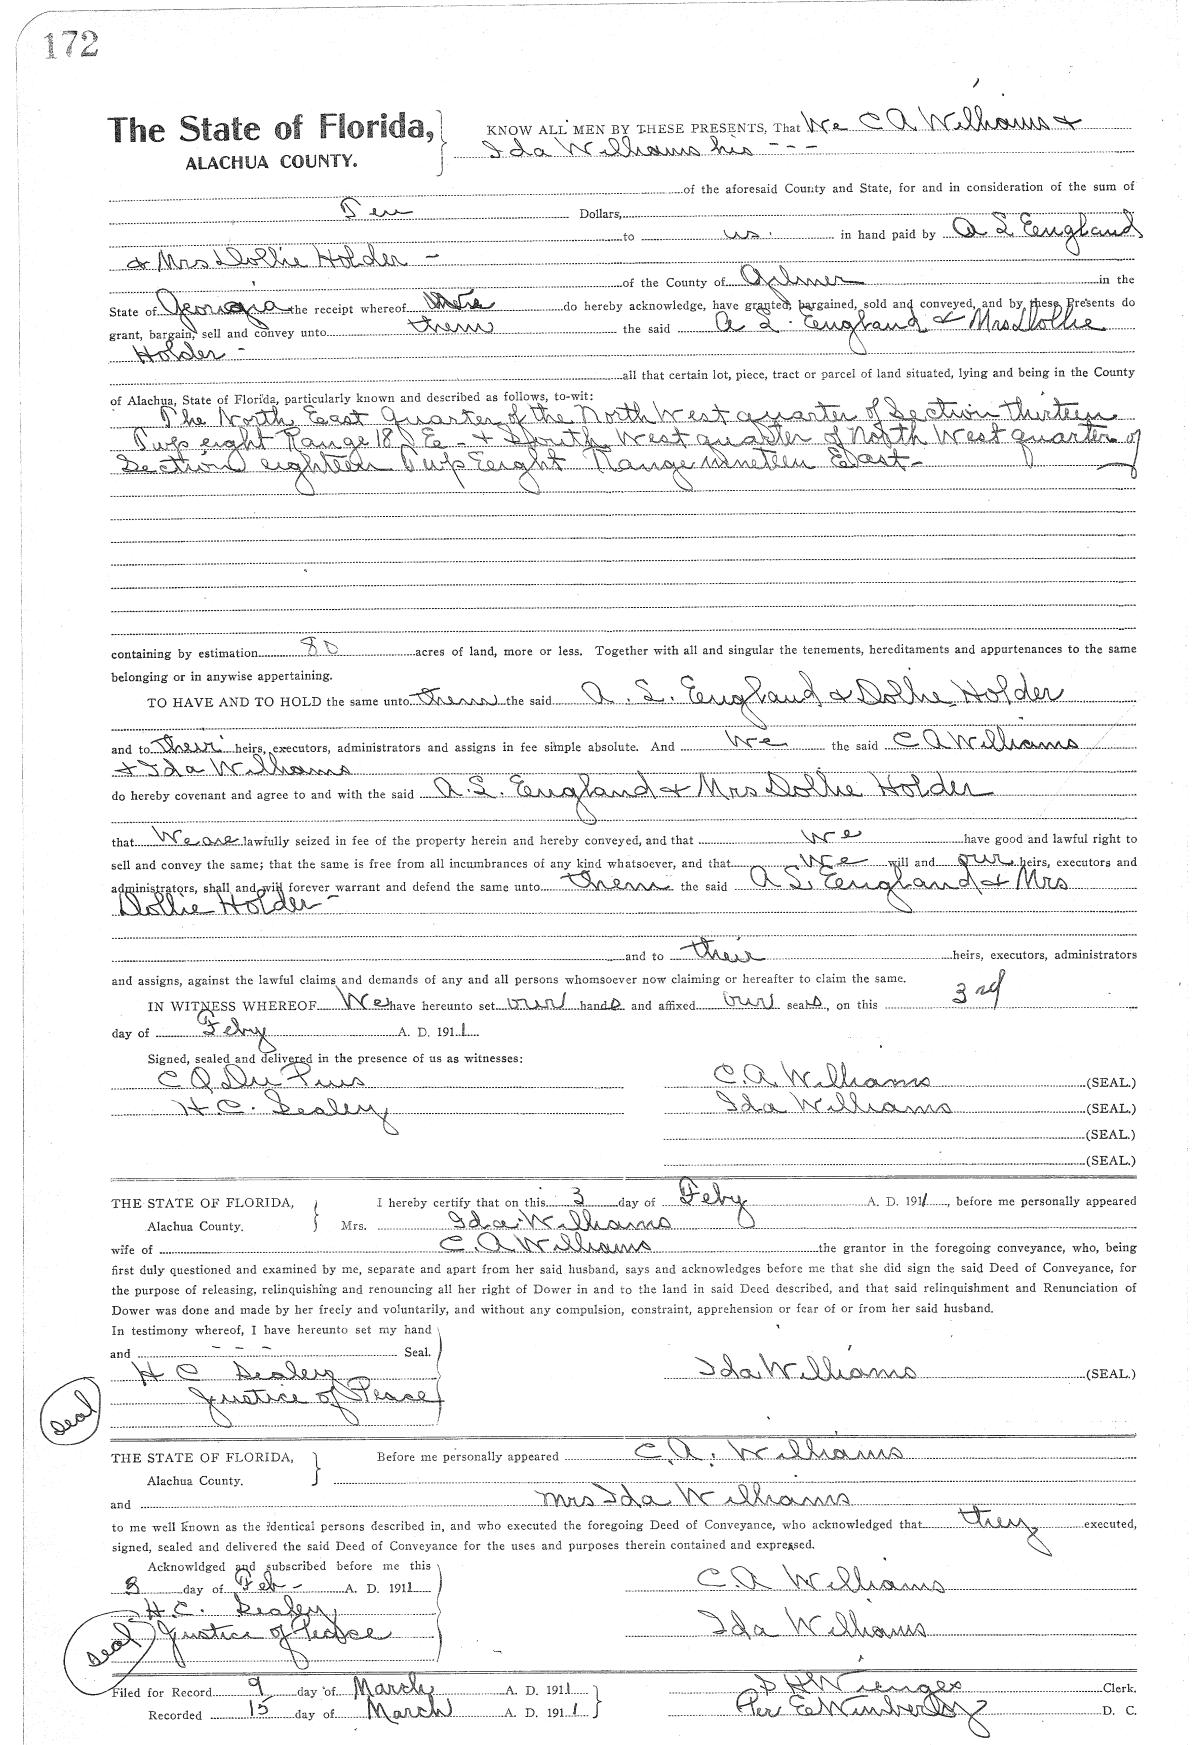 172
The State of Florida, KNOW ALL MEN BY THESE PRESENTS, That We C A Williams &
ALACHUA COUNTY. Ida Williams his - - -
of the aforesaid County and State, for and in consideration of the sum of
Ten Dollars,
to us. in hand paid by A S Eengland
& Mrs Dollie Holder -
of the County of Gilmer in the
State of Georgia the receipt whereof do hereby acknowledge, have granted, bargained, sold and conveyed, and by these Presents do
grant, bargain, sell and convey unto them the said A S. Eengland & Mrs Dollie
Holder -
all that certain lot, piece, tract or parcel of land situated, lying and being in the County
of Alachua, State of Florida, particularly known and described as follows, to-wit:
The North East Quarter of the North West quarter of Section thirteen
Twp eight Range 18 S E - & South West quarter of North West quarter of
Section eighteen Twp Eeight Range nineteen East -
containing by estimation 80 acres of land, more or less. Together with all and singular the tenements, hereditaments and appurtenances to the same
belonging or in anywise appertaining.
TO HAVE AND TO HOLD the same unto them the said A. S. Eengland & Dollie Holder
and to their heirs, executors, administrators and assigns in fee simple absolute. And We the said C A Williams
& Ida Williams
do hereby covenant and agree to and with the said A. S. Eengland & Mrs Dollie Holder
that We are lawfully seized in fee of the property herein and hereby conveyed, and that We have good and lawful right to
sell and convey the same; that the same is free from all incumbrances of any kind whatsoever, and that We will and our heirs, executors and
administrators, shall and will forever warrant and defend the same unto them the said A S. Eengland & Mrs
Dollie Holder -
and to their heirs, executors, administrators
and assigns, against the lawful claims and demands of any and all persons whomsoever now claiming or hereafter to claim the same.
IN WITNESS WHEREOF We have hereunto set our hands and affixed our seals, on this 3rd
day of Feby A. D. 1911
Signed, sealed and delivered in the presence of us as witnesses:
C A Williams (SEAL.)
H C. Sealey Ida Williams (SEAL.)
(SEAL.)
(SEAL.)
THE STATE OF FLORIDA, I hereby certify that on this 3 day of Feby A. D. 1911, before me personally appeared
Alachua County. Mrs. Ida Williams
wife of C. A Williams the grantor in the foregoing conveyance, who, being
first duly questioned and examined by me, separate and apart from her said husband, says and acknowledges before me that she did sign the said Deed of Conveyance, for
the purpose of releasing, relinquishing and renouncing all her right of Dower in and to the land in said Deed described, and that said relinquishment and Renunciation of
Dower was done and made by her freely and voluntarily, and without any compulsion, constraint, apprehension or fear of or from her said husband.
In testimony whereof, I have hereunto set my hand
and - - - Seal.
H C Sealey Ida Williams (SEAL)
Justice of Peace
Seal
THE STATE OF FLORIDA, Before me personally appeared C. A. Williams
Alachua County.
and Mrs Ida Williams
to me well known as the identical persons described in, and who executed the foregoing Deed of Conveyance, who acknowledged that they executed,
signed, sealed and delivered the said Deed of Conveyance for the uses and purposes therein contained and expressed.
Acknowldged and subscribed before me this
3 day of Feb - A. D. 1911 C. A Williams
H. C. Sealey
Justice of Peace Ida Williams
Seal
Filed for Record 9 day of March A. D. 1911 S H Wienges Clerk.
Recorded 15 day of March A. D. 1911 Per E Wimberly D. C.